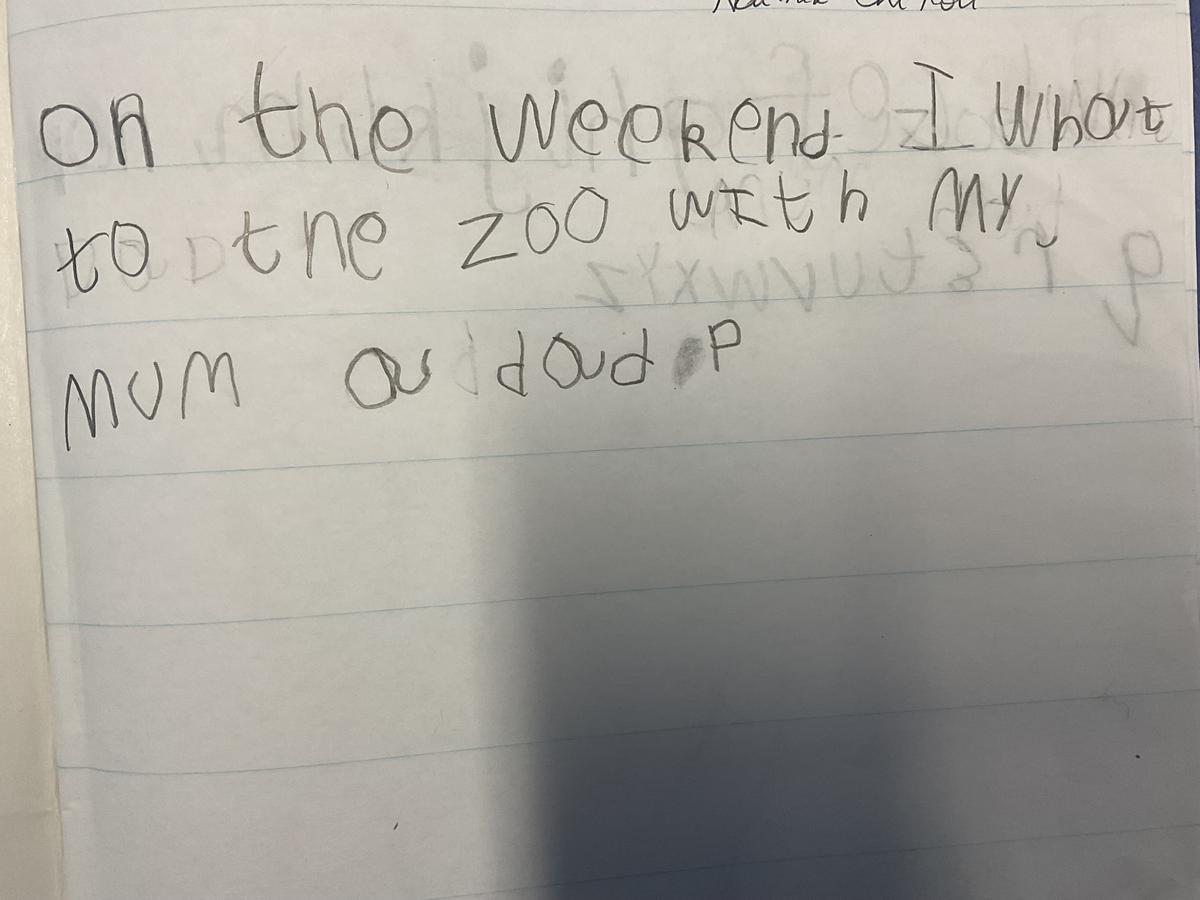 on the weekend I what
to the zoo with My
MUM au daud P